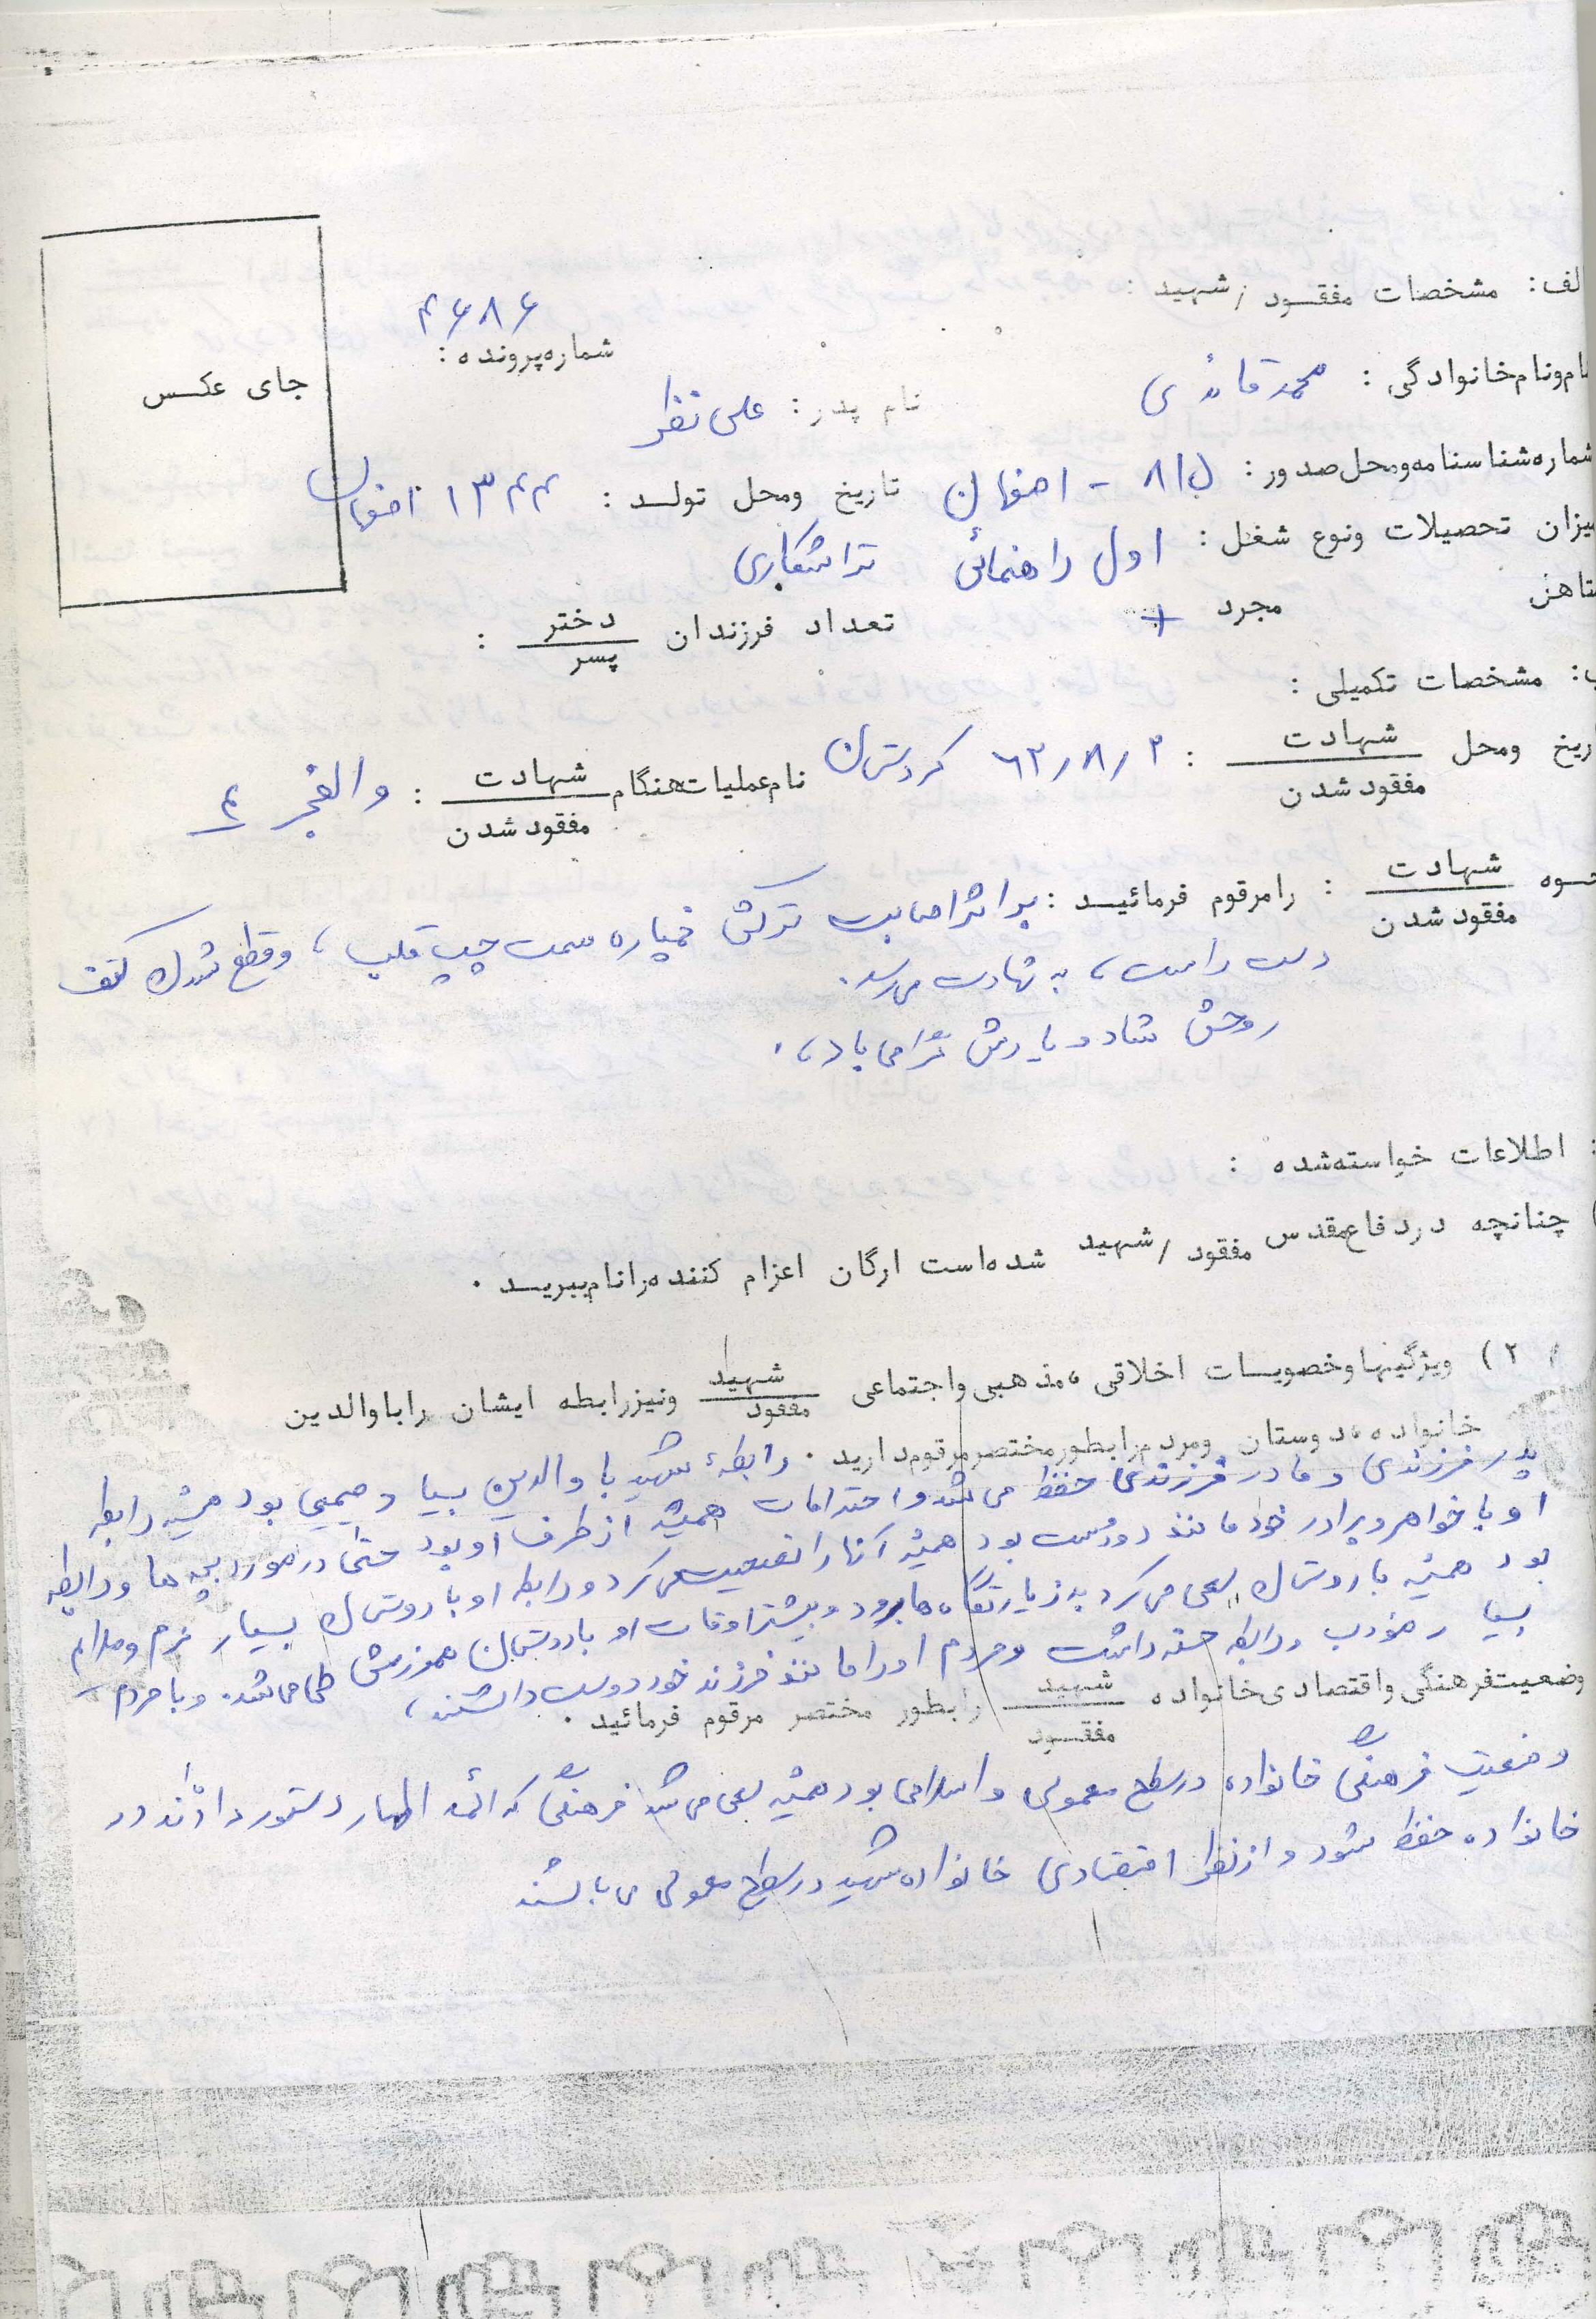 الف: مشخصات مفقود / شهید :
شماره پرونده : ۴۶۸۶
جای عکس
نام و نام خانوادگی : محمد قائدی نام پدر : علی نظر
شماره شناسنامه و محل صدور : اصفهان تاریخ و محل تولد : ۱۳۴۴ اصفهان
میزان تحصیلات و نوع شغل : اول راهنمائی تراشکاری
متاهل مجرد + تعداد فرزندان دختر / پسر :
ب: مشخصات تکمیلی :
تاریخ و محل شهادت / مفقود شدن : ۶۲/۸/۲ کردستان نام عملیات هنگام شهادت / مفقود شدن : والفجر ۴
نحوه شهادت / مفقود شدن : را مرقوم فرمائید : بر اثر اصابت ترکش خمپاره سمت چپ قلب ، و قطع شدن کتف
دست راست ، به شهادت می رسد .
روحش شاد و یادش گرامی باد ، .
: اطلاعات خواسته شده :
) چنانچه در دفاع مقدس مفقود / شهید شده است ارگان اعزام کننده را نام ببرید .
۲ ) ویژگیها و خصوصیات اخلاقی ، مذهبی و اجتماعی شهید / مفقود و نیز رابطه ایشان را با والدین
خانواده ، دوستان و مردم را بطور مختصر مرقوم دارید . رابطهٔ شهید با والدین بسیار صمیمی بود همیشه رابطه
پدر فرزندی و مادر فرزندی حفظ می شد و احترامات همیشه از طرف او بود حتی در مورد بچه ها و رابطه
او با خواهر و برادر خود مانند دوست بود همیشه آنها را نصیحت می کرد و رابطه او با دوستان بسیار نرم و ملایم
بود همیشه با دوستان سعی می کرد به زیارتگاه ها برود و بیشتر اوقات او با دوستان همرزمش طی می شد . و با مردم
بسیار مؤدب و رابطه حسنه داشت و مردم او را مانند فرزند خود دوست داشتند ،
وضعیت فرهنگی و اقتصادی خانواده شهید / مفقود را بطور مختصر مرقوم فرمائید .
وضعیت فرهنگی خانواده در سطح معمولی و اسلامی بود همیشه سعی می شد فرهنگی که ائمه اطهار دستور داده‌اند در
خانواده حفظ شود و از نظر اقتصادی خانواده شهید در سطح معمولی می باشند